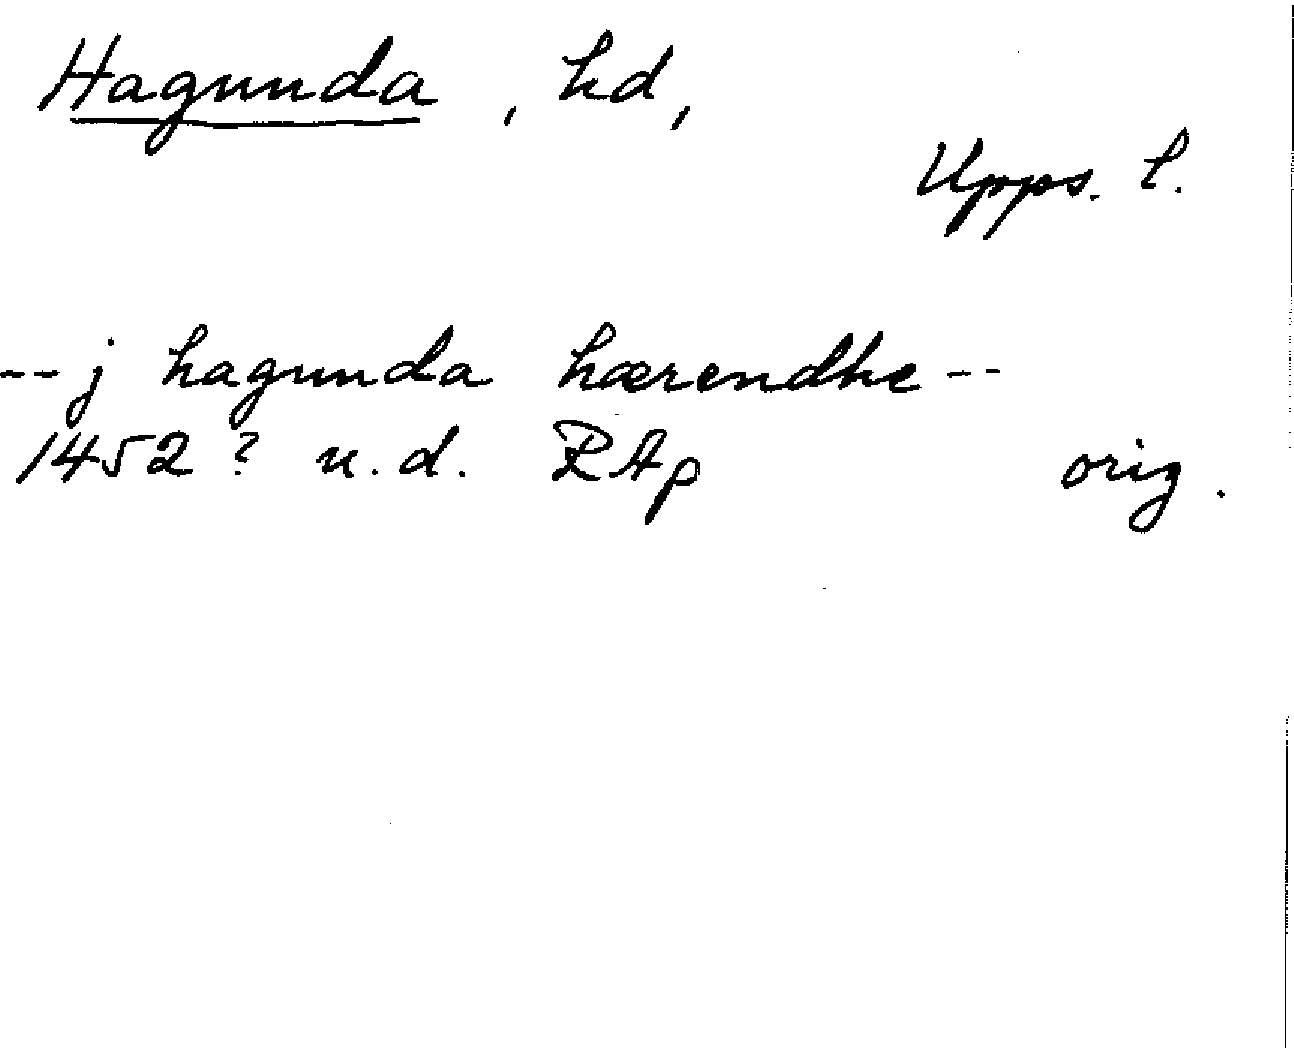 Hagunda, hd,
Upps. l.
-- j hagunda hærendhe --
1452? u.d. RAp orig.